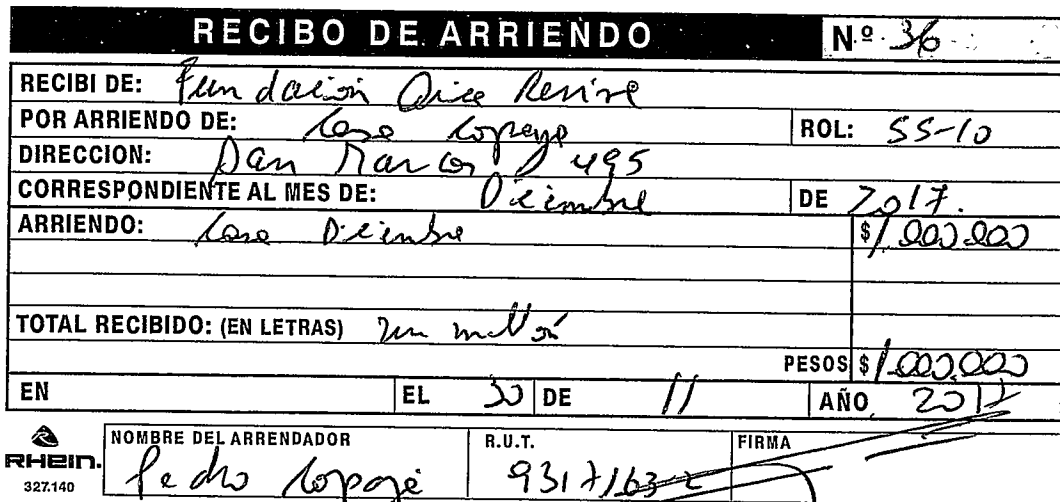 RECIBO DE ARRIENDO Nº 36
RECIBI DE: Fundación
POR ARRIENDO DE: Casa ROL: 55-10
DIRECCION: San Marcos 495
CORRESPONDIENTE AL MES DE: Diciembre DE 2017.
ARRIENDO: Casa Diciembre $1.000.000
TOTAL RECIBIDO: (EN LETRAS) un millón
PESOS $1.000.000
EN EL 30 DE 11 AÑO 2017
RHEIN. NOMBRE DEL ARRENDADOR R.U.T. FIRMA
327.140 Pedro